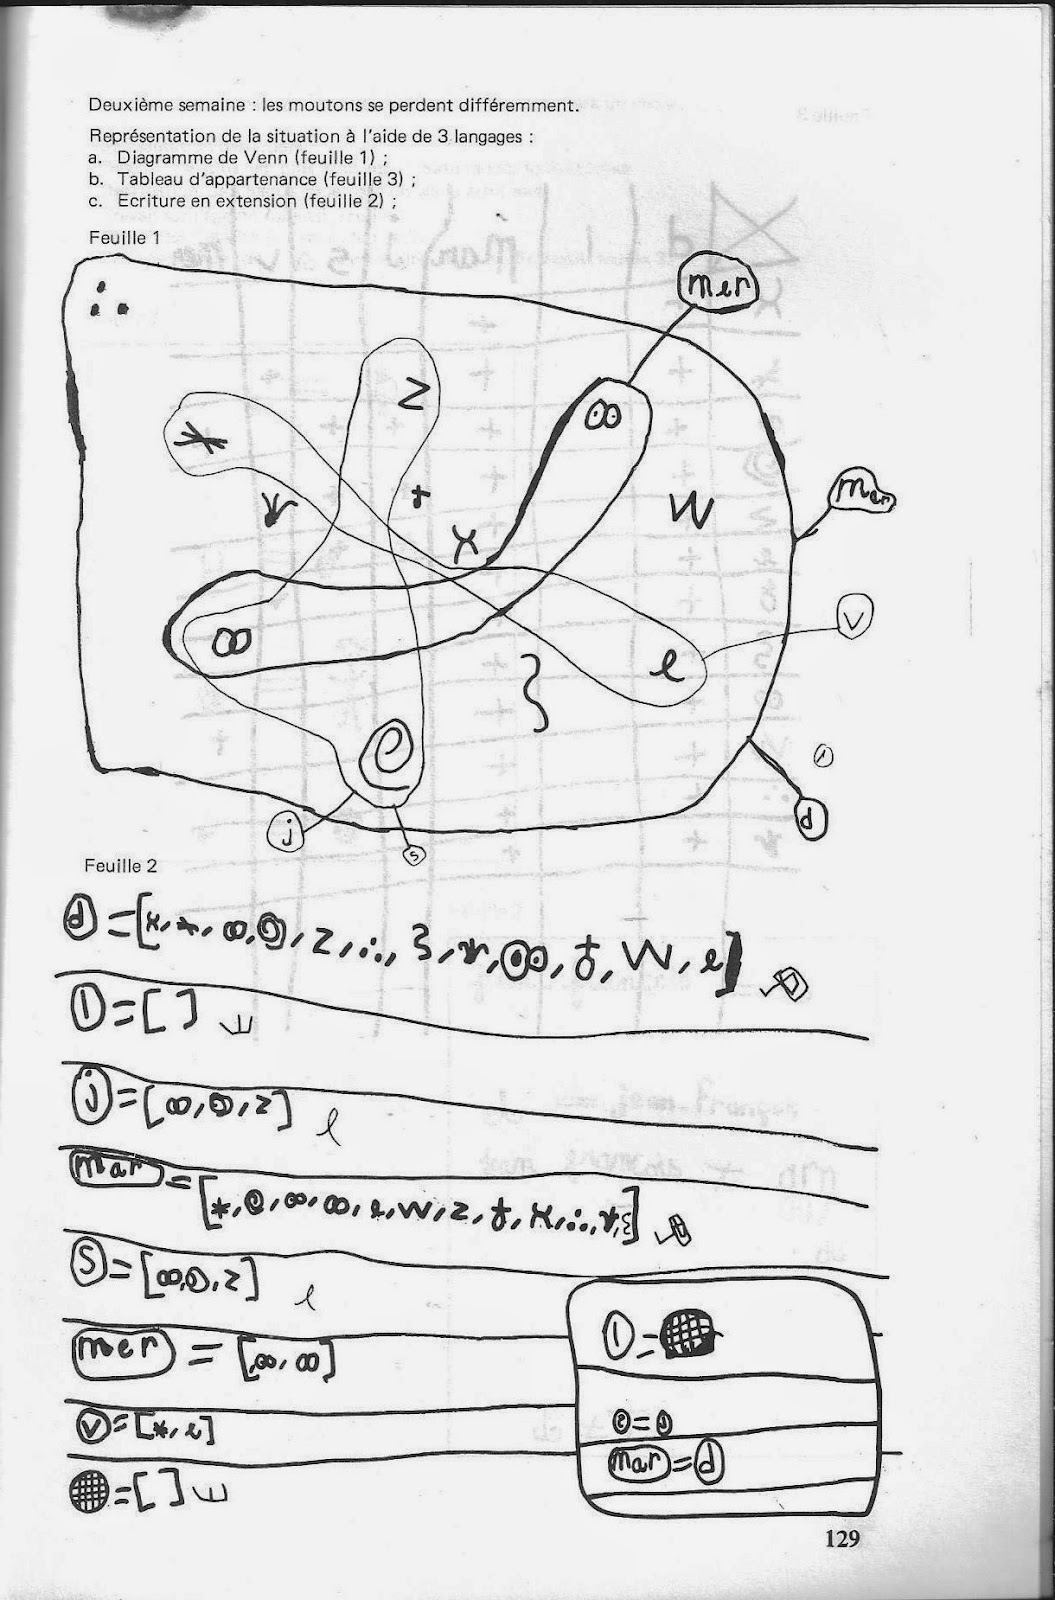 Deuxième semaine : les moutons se perdent différemment.
Représentation de la situation à l'aide de 3 langages :
a. Diagramme de Venn (feuille 1) ;
b. Tableau d'appartenance (feuille 3) ;
c. Ecriture en extension (feuille 2) ;
Feuille 1
mer
∴
z
*
∞
W
mer
x
v
∞
e
}
d
j
s
Feuille 2
d = [x, *, ∞, , z, ∴, , , ∞, , W, e]
l = [ ]
j = [∞, , z] l
mar = [*, , ∞, ∞, e, W, z, , x, ∴, , ]
s = [∞, , z] l
mer = [∞, ∞]
l =
v = [*, e]
mar = d
= [ ]
129